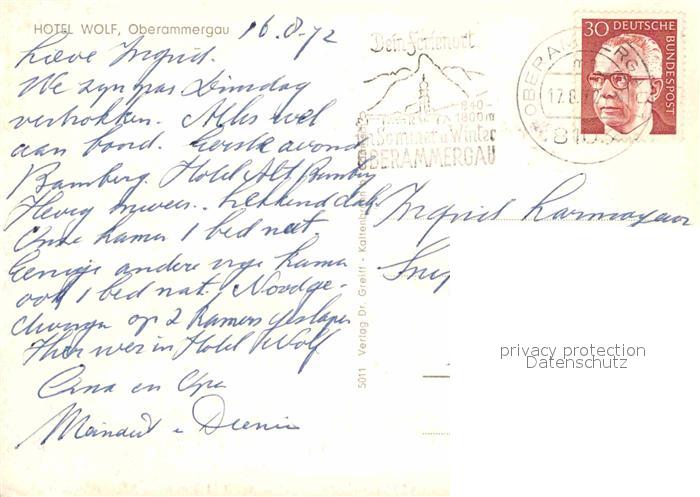 HOTEL WOLF, Oberammergau
16.8.72
Lieve Ingrid.
We zyn pas Dinsdag
vertrokken. Alles wel
aan boord. Eerste avond
Bamberg. Hotel Alt Bamberg
Hevig onweer.. Lekkend dak
Onze kamer 1 bed nat.
Eenige andere vrye kamer
ook 1 bed nat. Noodge-
dwongen op 2 kamers geslapen
Hier weer in Hotel Wolf
Oma en Opa
Meindert
Dein Ferienort
840-
1800m
Sommer u. Winter
OBERAMMERGAU
OBERAMMERG
17.8.7
8103
30 DEUTSCHE
BUNDESPOST
Ingrid
5011 Verlag Dr. Greiff - Kaltenb
privacy protection
Datenschutz